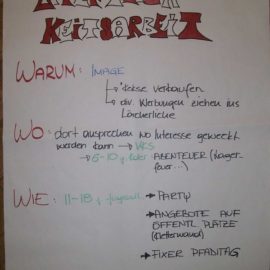 KEITSARBEIT
WARUM: IMAGE
→ Kekse verkaufen
→ div. Werbungen ziehen ins
Lächerliche
WO: dort ansprechen wo Interesse geweckt
werden kann → VKS
→ 6-10 j. oder ABENTEUER (Lager-
feuer...)
WIE: 11-18 j. → PARTY
→ ANGEBOTE AUF
ÖFFENTL. PLÄTZE
(Kletterwand)
→ FIXER PFADITAG